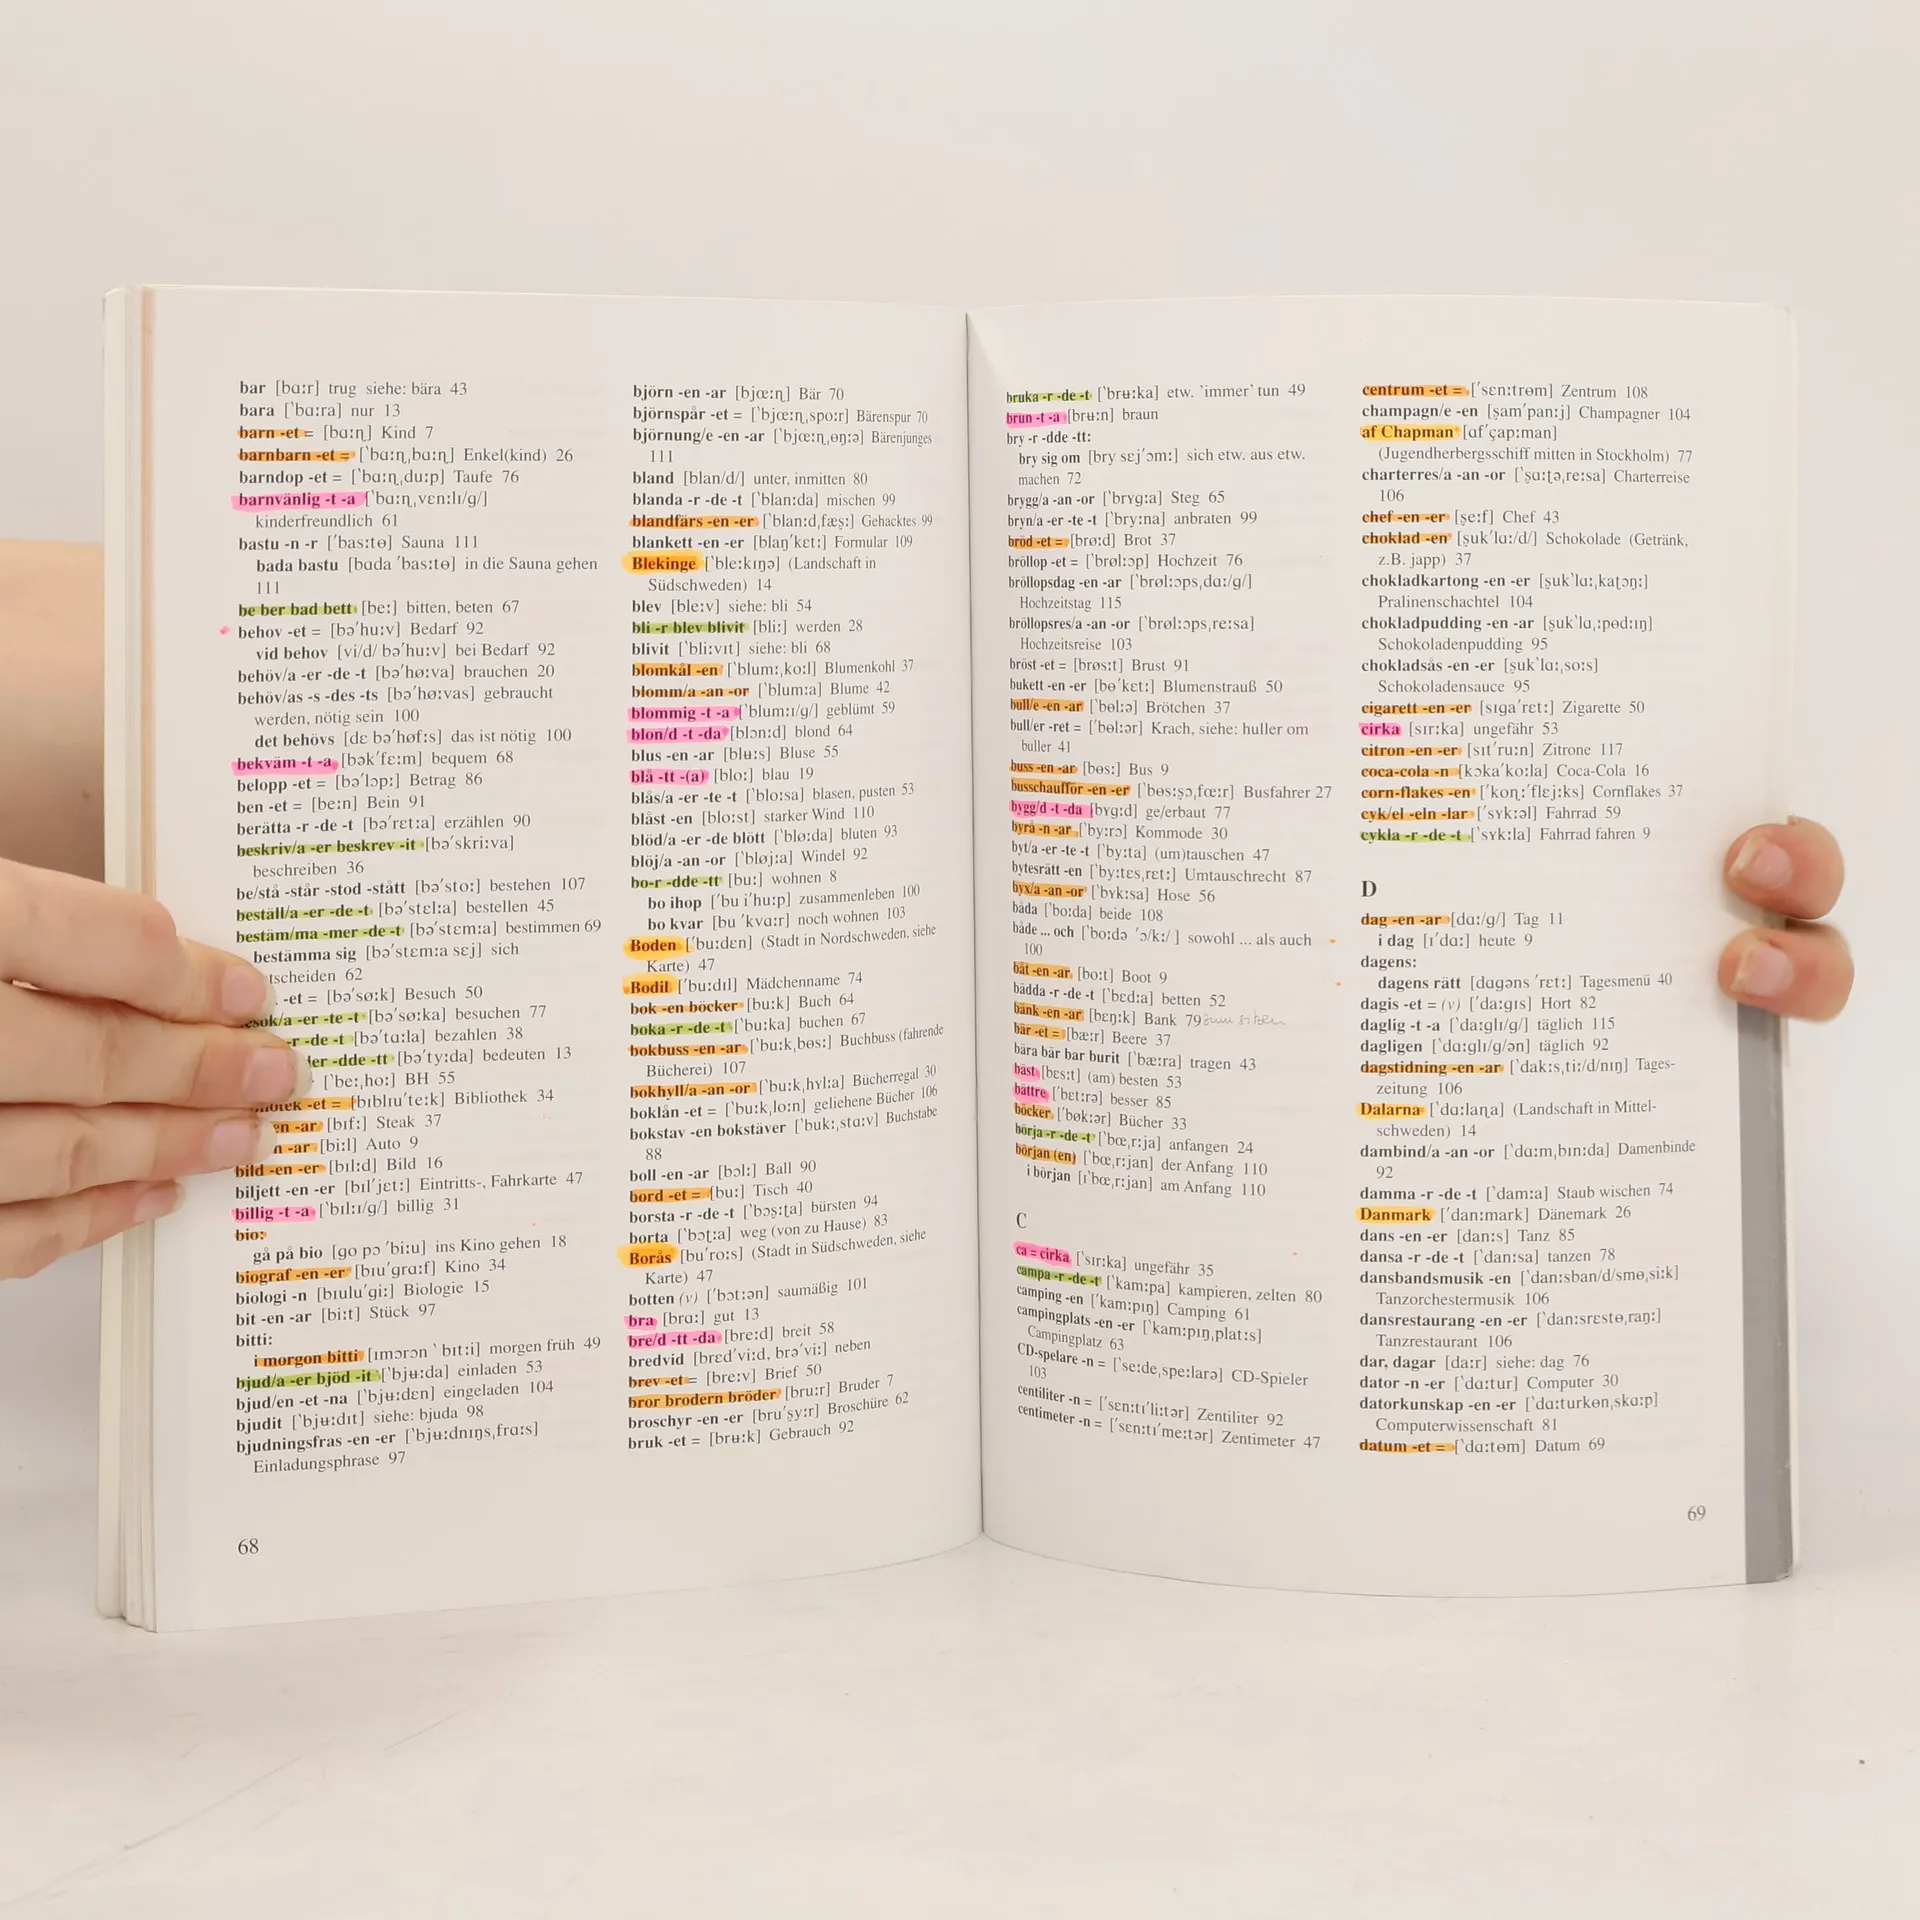 bar [bɑːr] trug siehe: bära 43
bara [ˋbɑːra] nur 13
barn -et = [bɑːɳ] Kind 7
barnbarn -et = [ˋbɑːɳˌbɑːɳ] Enkel(kind) 26
barndop -et = [ˋbɑːɳˌduːp] Taufe 76
barnvänlig -t -a [ˋbɑːɳˌvɛnːlɪ/g/]
kinderfreundlich 61
bastu -n -r [ˋbasːtɵ] Sauna 111
bada bastu [bɑda ˊbasːtɵ] in die Sauna gehen
111
be ber bad bett [beː] bitten, beten 67
behov -et = [bəˊhuːv] Bedarf 92
vid behov [vi/d/ bəˊhuːv] bei Bedarf 92
behöv/a -er -de -t [bəˊhøːva] brauchen 20
behöv/as -s -des -ts [bəˊhøːvas] gebraucht
werden, nötig sein 100
det behövs [dɛ bəˊhøfːs] das ist nötig 100
bekväm -t -a [bəkˊfɛːm] bequem 68
belopp -et = [bəˊlɔpː] Betrag 86
ben -et = [beːn] Bein 91
berätta -r -de -t [bəˊrɛtːa] erzählen 90
beskriv/a -er beskrev -it [bəˊskriːva]
beschreiben 36
be/stå -står -stod -stått [bəˊstoː] bestehen 107
beställ/a -er -de -t [bəˊstɛlːa] bestellen 45
bestäm/ma -mer -de -t [bəˊstɛmːa] bestimmen 69
bestämma sig [bəˊstɛmːa sɛj] sich
tscheiden 62
-et = [bəˊsøːk] Besuch 50
esök/a -er -te -t [bəˊsøːka] besuchen 77
-r -de -t [bəˊtɑːla] bezahlen 38
der -dde -tt [bəˊtyːda] bedeuten 13
[ˋbeːˌhoː] BH 55
iotek -et = [bɪblɪuˊteːk] Bibliothek 34
en -ar [bɪfː] Steak 37
n -ar [biːl] Auto 9
bild -en -er [bɪlːd] Bild 16
biljett -en -er [bɪlˊjɛtː] Eintritts-, Fahrkarte 47
billig -t -a [ˋbɪlːɪ/g/] billig 31
bio:
gå på bio [go pɔ ˊbiːu] ins Kino gehen 18
biograf -en -er [bɪuˊgrɑːf] Kino 34
biologi -n [bɪuluˊgiː] Biologie 15
bit -en -ar [biːt] Stück 97
bitti:
i morgon bitti [ɪmɔrɔn ˋbɪtːi] morgen früh 49
bjud/a -er bjöd -it [ˋbjʉːda] einladen 53
bjud/en -et -na [ˋbjʉːdɛn] eingeladen 104
bjudit [ˋbjʉːdɪt] siehe: bjuda 98
bjudningsfras -en -er [ˋbjʉːdnɪŋsˌfrɑːs]
Einladungsphrase 97
68
björn -en -ar [bjœːɳ] Bär 70
björnspår -et = [ˋbjœːɳˌspoːr] Bärenspur 70
björnung/e -en -ar [ˋbjœːɳˌɵŋːə] Bärenjunges
111
bland [blan/d/] unter, inmitten 80
blanda -r -de -t [ˋblanːda] mischen 99
blandfärs -en -er [ˋblanːdˌfæʂː] Gehacktes 99
blankett -en -er [blaŋˊkɛtː] Formular 109
Blekinge [ˋbleːkɪŋə] (Landschaft in
Südschweden) 14
blev [bleːv] siehe: bli 54
bli -r blev blivit [bliː] werden 28
blivit [ˋbliːvɪt] siehe: bli 68
blomkål -en [ˋblumːˌkoːl] Blumenkohl 37
blomm/a -an -or [ˋblumːa] Blume 42
blommig -t -a [ˋblumːɪ/g/] geblümt 59
blon/d -t -da [blɔnːd] blond 64
blus -en -ar [blʉːs] Bluse 55
blå -tt -(a) [bloː] blau 19
blås/a -er -te -t [ˋbloːsa] blasen, pusten 53
blåst -en [bloːst] starker Wind 110
blöd/a -er -de blött [ˋbløːda] bluten 93
blöj/a -an -or [ˋbløjːa] Windel 92
bo-r -dde -tt [buː] wohnen 8
bo ihop [ˋbu iˊhuːp] zusammenleben 100
bo kvar [bu ˊkvɑːr] noch wohnen 103
Boden [ˋbuːdɛn] (Stadt in Nordschweden, siehe
Karte) 47
Bodil [ˋbuːdɪl] Mädchenname 74
bok -en böcker [buːk] Buch 64
boka -r -de -t [ˋbuːka] buchen 67
bokbuss -en -ar [ˋbuːkˌbɵsː] Buchbuss (fahrende
Bücherei) 107
bokhyll/a -an -or [ˋbuːkˌhylːa] Bücherregal 30
boklån -et = [ˋbuːkˌloːn] geliehene Bücher 106
bokstav -en bokstäver [ˋbukːˌstɑːv] Buchstabe
88
boll -en -ar [bɔlː] Ball 90
bord -et = [buː] Tisch 40
borsta -r -de -t [ˋbɔʂːʈa] bürsten 94
borta [ˋbɔʈːa] weg (von zu Hause) 83
Borås [buˊroːs] (Stadt in Südschweden, siehe
Karte) 47
botten (v) [ˋbɔtːən] saumäßig 101
bra [brɑː] gut 13
bre/d -tt -da [breːd] breit 58
bredvid [brɛdˊviːd, brəˊviː] neben
brev -et = [breːv] Brief 50
bror brodern bröder [bruːr] Bruder 7
broschyr -en -er [bruˊʂyːr] Broschüre 62
bruk -et = [brʉːk] Gebrauch 92
bruka -r -de -t [ˋbrʉːka] etw. 'immer' tun 49
brun -t -a [brʉːn] braun
bry -r -dde -tt:
bry sig om [bry sɛjˊɔmː] sich etw. aus etw.
machen 72
brygg/a -an -or [ˋbrygːa] Steg 65
bryn/a -er -te -t [ˋbryːna] anbraten 99
bröd -et = [brøːd] Brot 37
bröllop -et = [ˋbrølːɔp] Hochzeit 76
bröllopsdag -en -ar [ˋbrølːɔpsˌdɑː/g/]
Hochzeitstag 115
bröllopsres/a -an -or [ˋbrølːɔpsˌreːsa]
Hochzeitsreise 103
bröst -et = [brøsːt] Brust 91
bukett -en -er [bɵˊkɛtː] Blumenstrauß 50
bull/e -en -ar [ˋbɵlːə] Brötchen 37
bull/er -ret = [ˊbɵlːər] Krach, siehe: huller om
buller 41
buss -en -ar [bɵsː] Bus 9
busschaufför -en -er [ˋbɵsːʂɔˌfœːr] Busfahrer 27
bygg/d -t -da [bygːd] ge/erbaut 77
byrå -n -ar [ˋbyːrɔ] Kommode 30
byt/a -er -te -t [ˋbyːta] (um)tauschen 47
bytesrätt -en [ˋbyːtɛsˌrɛtː] Umtauschrecht 87
byx/a -an -or [ˋbykːsa] Hose 56
båda [ˋboːda] beide 108
både ... och [ˋboːdə ˊɔ/kː/ ] sowohl ... als auch
100
båt -en -ar [boːt] Boot 9
bädda -r -de -t [ˋbɛdːa] betten 52
bänk -en -ar [bɛŋːk] Bank 79 zum sitzen
bär -et = [bæːr] Beere 37
bära bär bar burit [ˋbæːra] tragen 43
bäst [bɛsːt] (am) besten 53
bättre [ˋbɛtːrə] besser 85
böcker [ˋbøkːər] Bücher 33
börja -r -de -t [ˋbœˌrːja] anfangen 24
början (en) [ˋbœˌrːjan] der Anfang 110
i början [ɪˋbœˌrːjan] am Anfang 110
C
ca = cirka [ˋsɪrːka] ungefähr 35
campa -r -de -t [ˋkamːpa] kampieren, zelten 80
camping -en [ˋkamːpɪŋ] Camping 61
campingplats -en -er [ˋkamːpɪŋˌplatːs]
Campingplatz 63
CD-spelare -n = [ˋseːdeˌspeːlarə] CD-Spieler
103
centiliter -n = [ˋsɛnːtɪˊliːtər] Zentiliter 92
centimeter -n = [ˋsɛnːtɪˊmeːtər] Zentimeter 47
centrum -et = [ˊsɛnːtrɵm] Zentrum 108
champagn/e -en [ʂamˊpanːj] Champagner 104
af Chapman [ɑfˊçapːman]
(Jugendherbergsschiff mitten in Stockholm) 77
charterres/a -an -or [ˋʂɑːʈəˌreːsa] Charterreise
106
chef -en -er [ʂeːf] Chef 43
choklad -en [ʂukˊlɑː/d/] Schokolade (Getränk,
z.B. japp) 37
chokladkartong -en -er [ʂukˋlɑːˌkaʈɔŋː]
Pralinenschachtel 104
chokladpudding -en -ar [ʂukˋlɑːˌpɵdːɪŋ]
Schokoladenpudding 95
chokladsås -en -er [ʂukˋlɑːˌsoːs]
Schokoladensauce 95
cigarett -en -er [sɪgaˊrɛtː] Zigarette 50
cirka [sɪrːka] ungefähr 53
citron -en -er [sɪtˊruːn] Zitrone 117
coca-cola -n [kɔkaˊkoːla] Coca-Cola 16
corn-flakes -en [ˊkoɳːˊflɛjːks] Cornflakes 37
cyk/el -eln -lar [ˊsykːəl] Fahrrad 59
cykla -r -de -t [ˋsykːla] Fahrrad fahren 9
D
dag -en -ar [dɑː/g/] Tag 11
i dag [ɪˊdɑː] heute 9
dagens:
dagens rätt [dɑgəns ˊrɛtː] Tagesmenü 40
dagis -et = (v) [ˋdɑːgɪs] Hort 82
daglig -t -a [ˋdɑːglɪ/g/] täglich 115
dagligen [ˋdɑːglɪ/g/ən] täglich 92
dagstidning -en -ar [ˋdakːsˌtiː/d/nɪŋ] Tages-
zeitung 106
Dalarna [ˋdɑːlaɳa] (Landschaft in Mittel-
schweden) 14
dambind/a -an -or [ˋdɑːmˌbɪnːda] Damenbinde
92
damma -r -de -t [ˋdamːa] Staub wischen 74
Danmark [ˊdanːmark] Dänemark 26
dans -en -er [danːs] Tanz 85
dansa -r -de -t [ˋdanːsa] tanzen 78
dansbandsmusik -en [ˋdanːsban/d/smɵˌsiːk]
Tanzorchestermusik 106
dansrestaurang -en -er [ˋdanːsrɛstɵˌraŋː]
Tanzrestaurant 106
dar, dagar [dɑːr] siehe: dag 76
dator -n -er [ˋdɑːtur] Computer 30
datorkunskap -en -er [ˋdɑːturkɵnˌskɑːp]
Computerwissenschaft 81
datum -et = [ˋdɑːtɵm] Datum 69
69